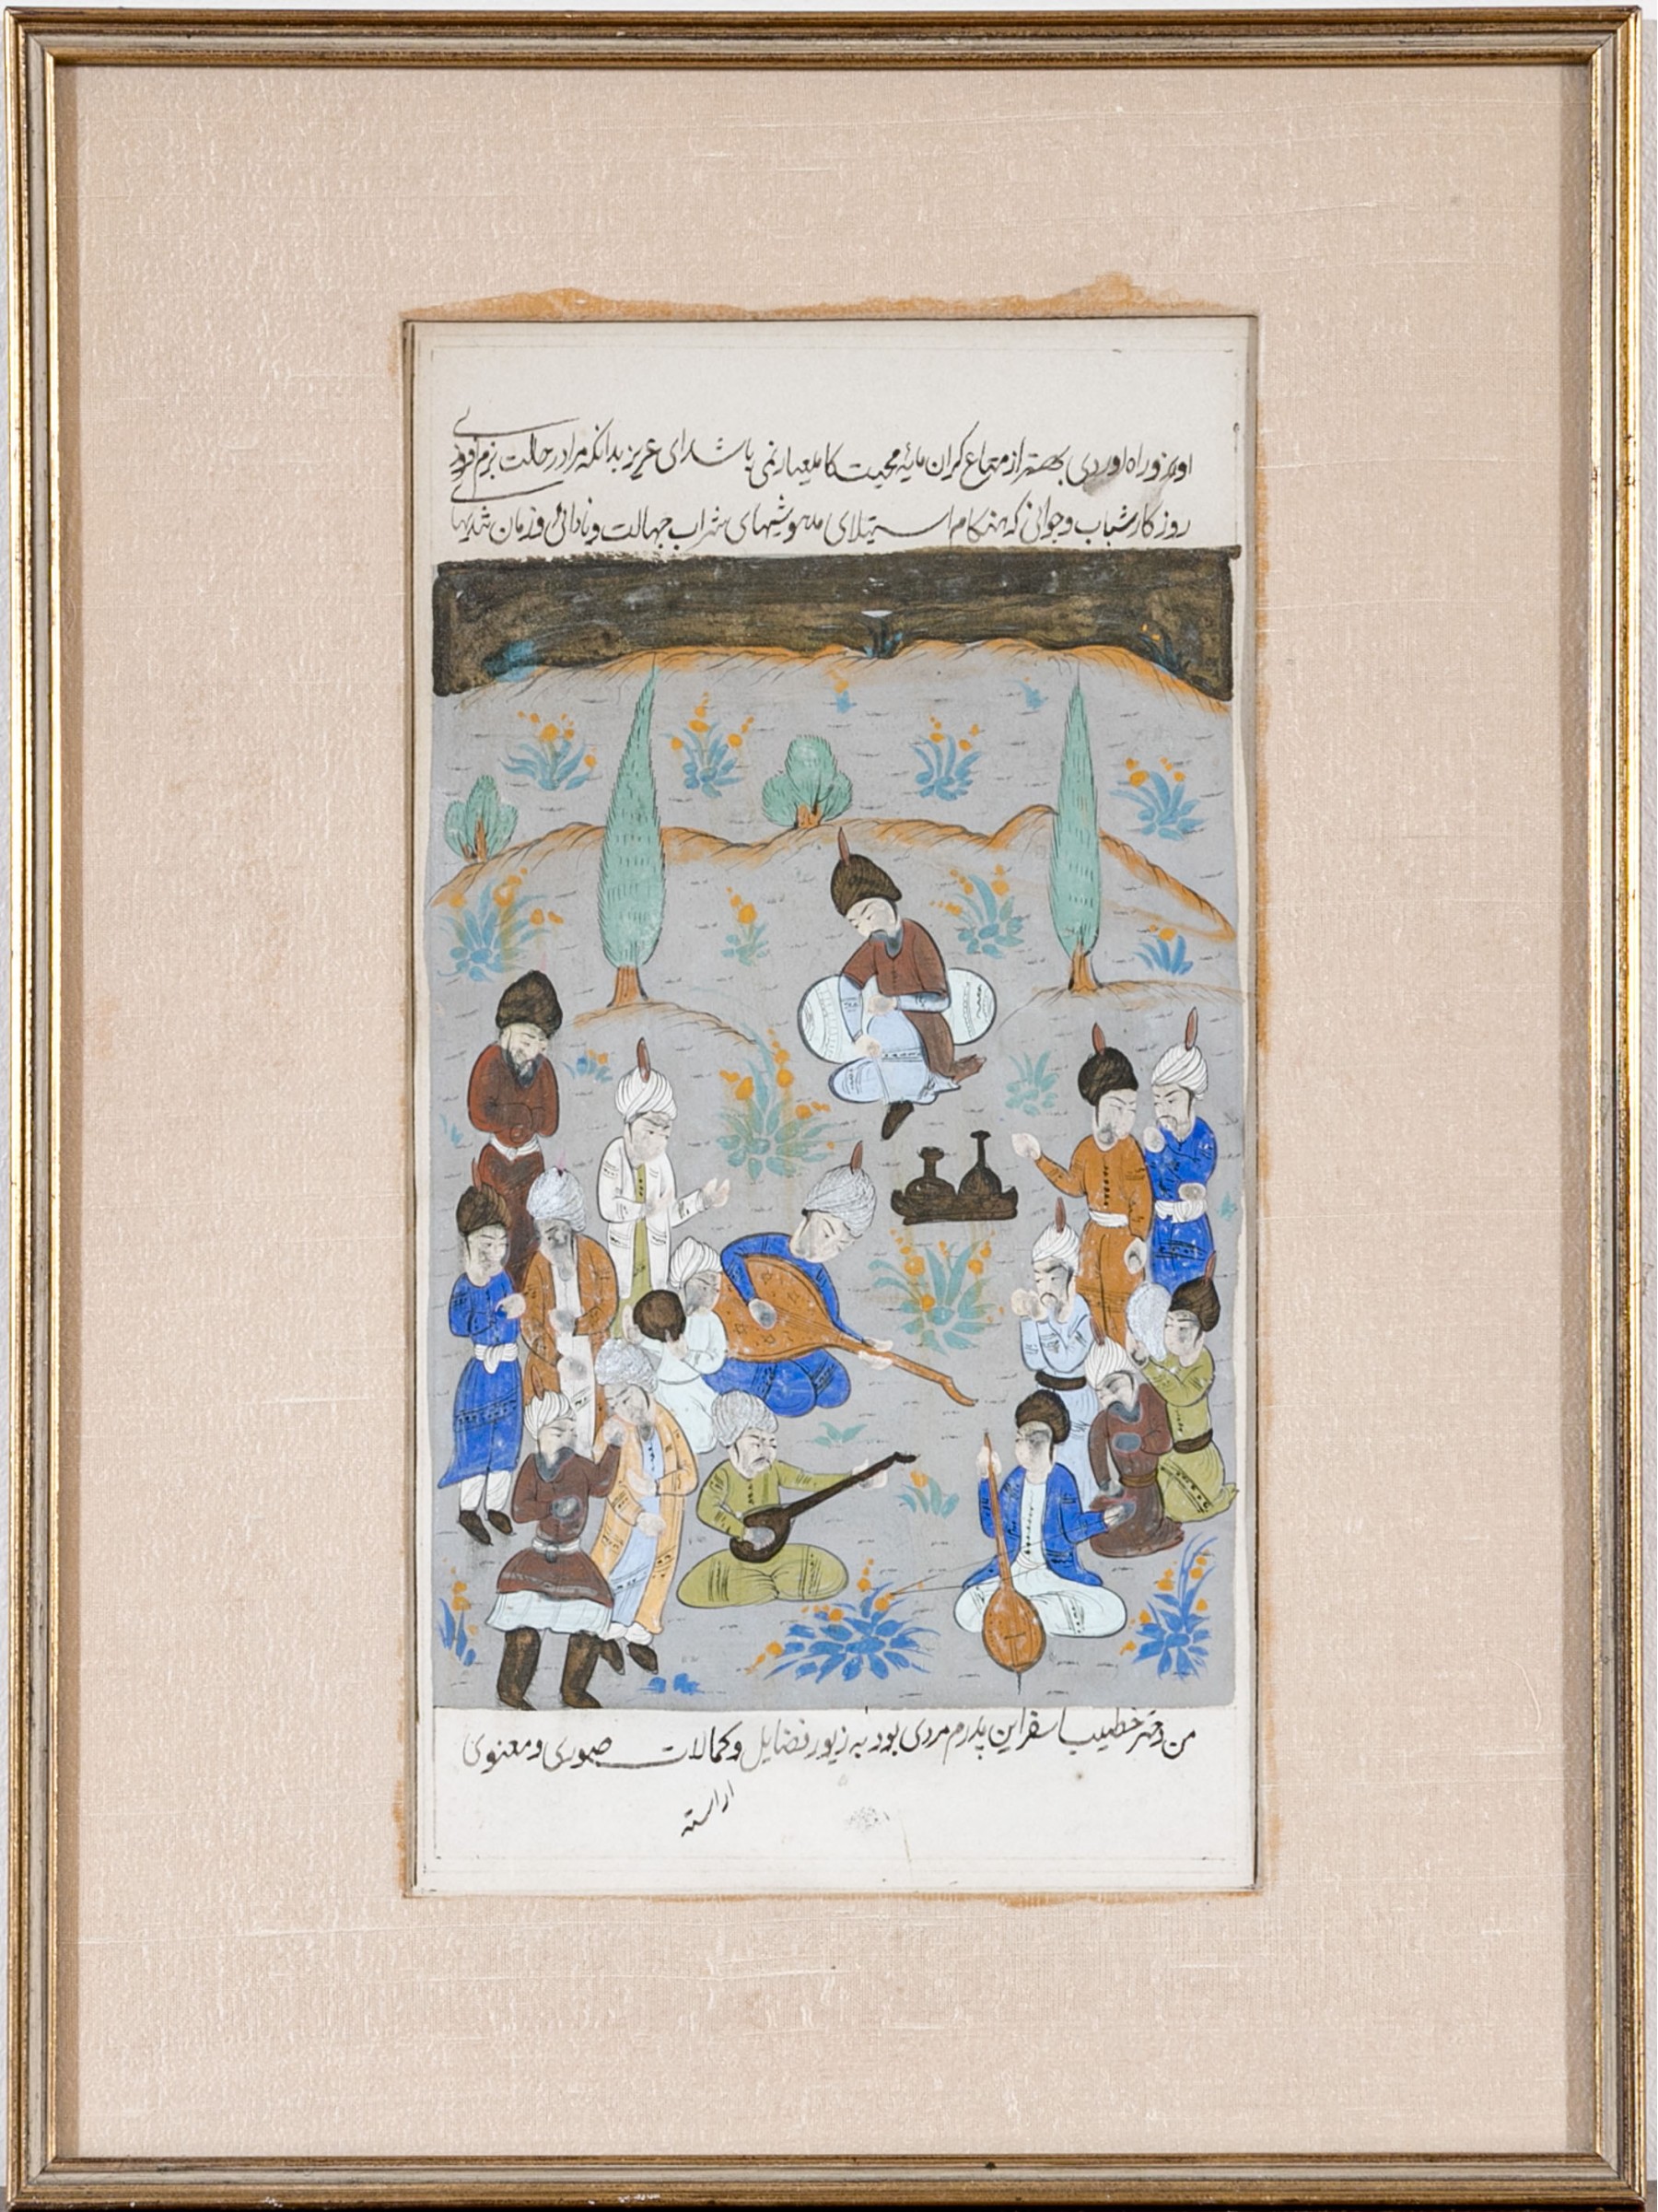 راه اوردی بهتر از متاع گران مایه محبت کامل عیار نمی باشد ای عزیز بدانکه مرا در حالت بزم افروزی
روزگار شباب و جوانی که هنکام استیلای مدهوشیهای شراب جهالت و نادانی و زمان
من دختر خطیب اسفراین پدرم مردی بود به زیور فضایل و کمالات صوری و معنوی
اراسته